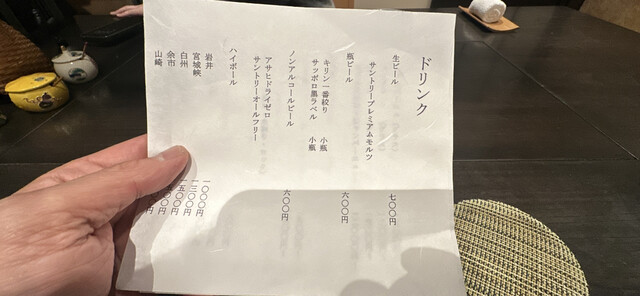 ドリンク
生ビール
サントリープレミアムモルツ 七〇〇円
瓶ビール
キリン一番絞り 小瓶
サッポロ黒ラベル 小瓶 六〇〇円
ノンアルコールビール
アサヒドライゼロ
サントリーオールフリー 六〇〇円
ハイボール
岩井 一〇〇〇円
宮城峡 一三〇〇円
白州 一五〇〇円
余市
山崎